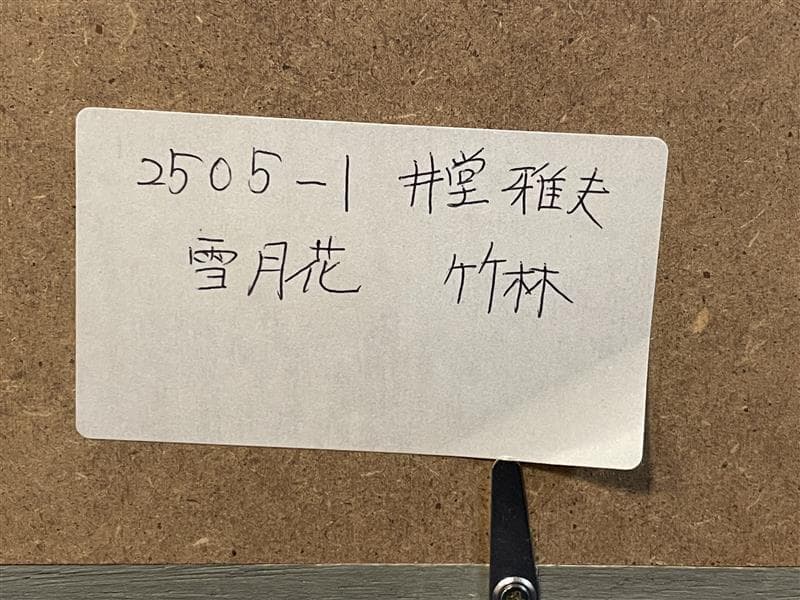 2505-1 井堂雅夫
雪月花 竹林